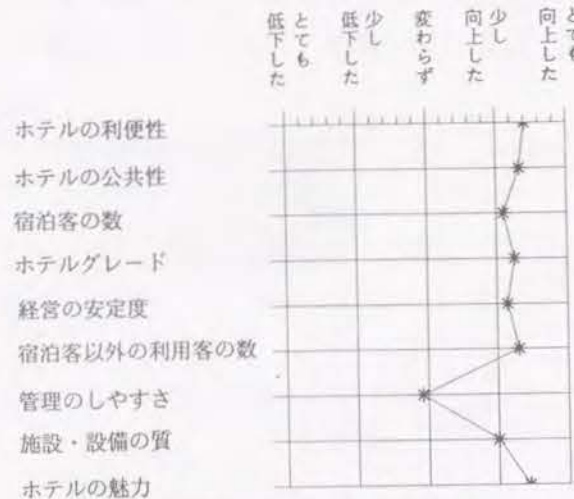 とても
低下した
少し
低下した
変わらず
少し
向上した
とても
向上した
ホテルの利便性
ホテルの公共性
宿泊客の数
ホテルグレード
経営の安定度
宿泊客以外の利用客の数
管理のしやすさ
施設・設備の質
ホテルの魅力